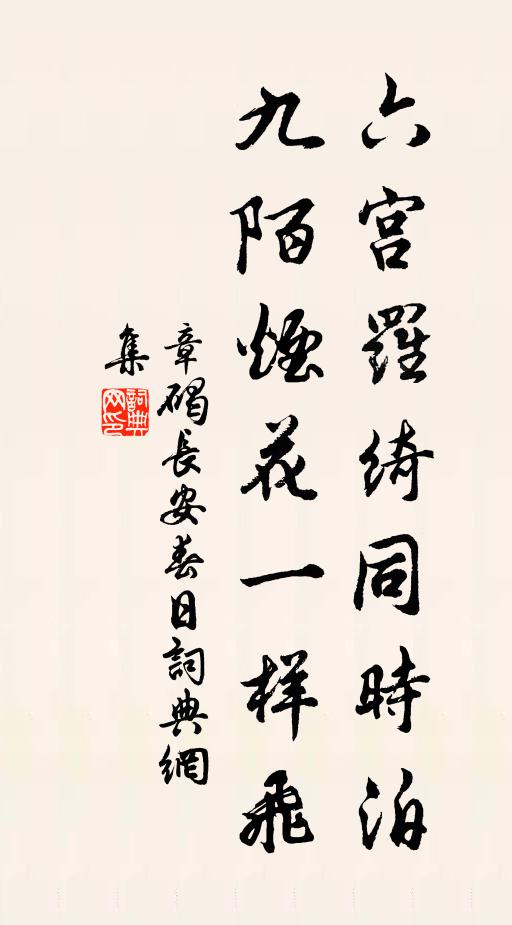 六宫羅綺同時泊
九陌煙花一样飛
章碣長安春日詞典網
集
詞典
网印